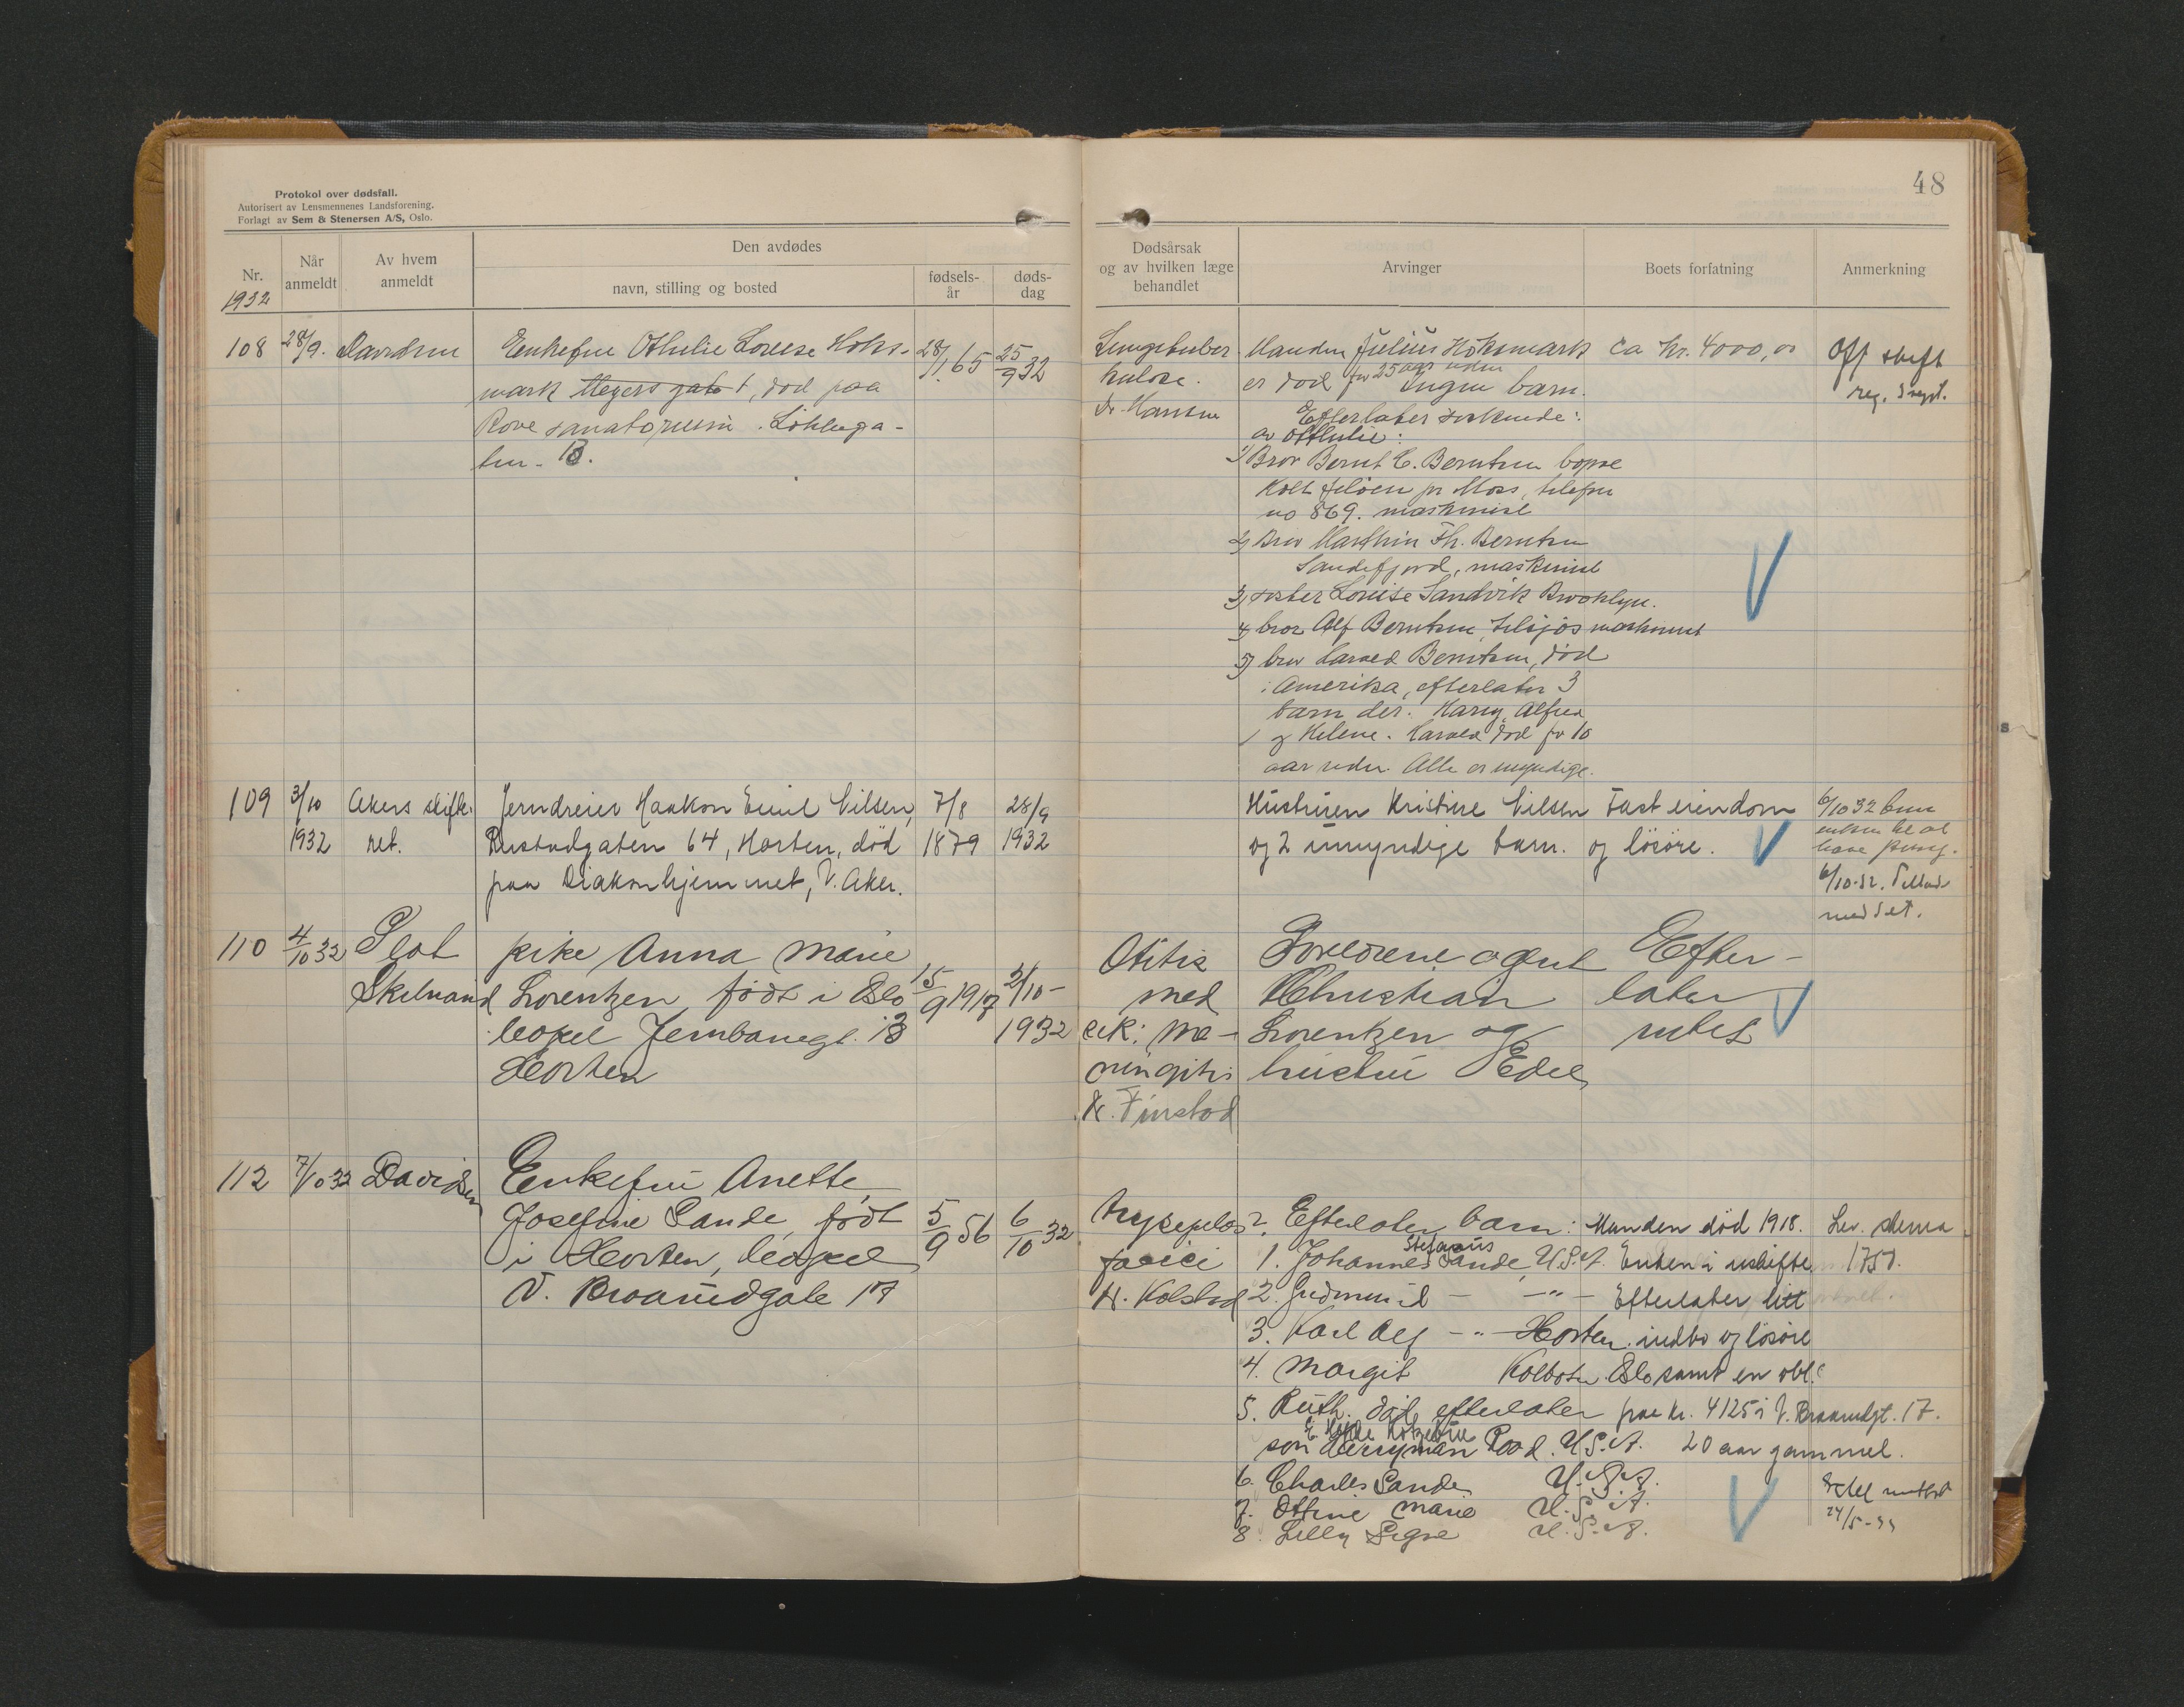 48
Protokol over dødsfall.
Autorisert av Lensmennenes Landsforening.
Forlagt av Sem & Stenersen A/S, Oslo.
Nr.
1932
Når
anmeldt
Av hvem
anmeldt
Den avdødes
navn, stilling og bosted
fødsels-
år
døds-
dag
Dødsårsak
og av hvilken læge
behandlet
Arvinger
Boets forfatning
Anmerkning
108
28/9.
Davidsen
Enkefru Othilie Lovise Höks-
mark Meyers gate 1, död paa
Rove sanatorium. Löklega-
ten
28/1 65
25/9 32
Lungetuber
kulose.
Dr. Hansen
Manden Julius Höksmark
er död for 25 aar siden
Ingen barn.
Efterlater söskende:
av Othilie:
1) Bror Bernt C. Berntsen bopæl
Jelöen pr Moss, telefon
no 869. maskinist
2) Bror Marthin Th. Berntsen
Sandefjord, maskinist
3) söster Louise Sandvik Brooklyn.
4) bror Alf Berntsen, tilsjös maskinist
5) bror Harald Berntsen, död
i Amerika, efterlater 3
barn der. Harry, Alfred
og Helene. Harald död for 10
aar siden Alle er myndige.
ca kr. 4000,00
Off skift
reg.
109
3/10
1932
Akers skifte-
ret.
Jerndreier Haakon Emil Nilsen,
Rustadgaten 64, Horten, död
paa Diakonhjemmet, V. Aker.
7/8
1879
28/9
1932
Hustruen Kristine Nilsen
og 2 umyndige barn.
Fast eiendom
og lösöre.
6/10 32
enken
have
6/10-32.
med
110
4/10 32
Skelnand
pike Anna Marie
Lorentzen född i Oslo
bopæl Jernbanegt. 13
Horten
15/9 1917
2/10-
1932
Otitis
med
sek: me-
ningitis
Dr. Finstad
Foreldrene agent
Christian
Lorentzen og
hustru Edel
Efter-
later
intet
112
7/10 32
Davidsen
Enkefru Anette
Josefine Sande, født
i Horten, bopæl
V. Braarudgate 17
5/9 56
6/10 32
Erysipelas
faciei
Dr. Kolstad
Efterlater barn:
1. Johannes Stefanus Sande, U.S.A.
2. Gudmund - -"-
3. Karl Alf -"- Horten
4. Margit Kolbotn Oslo
5. Ruth. död, efterlater
son Rood. U.S.A. 20 aar gammel.
6. Charles Sande U.S.A.
7. Ottine Marie U.S.A.
8. Lilly Signe U.S.A.
Manden död 1918.
Enken i uskifte
Efterlater litt
indbo og lösöre
samt en obl.
paa kr. 4125 i V. Braarudgt. 17.
Lev. skema
1757.
24/5-33